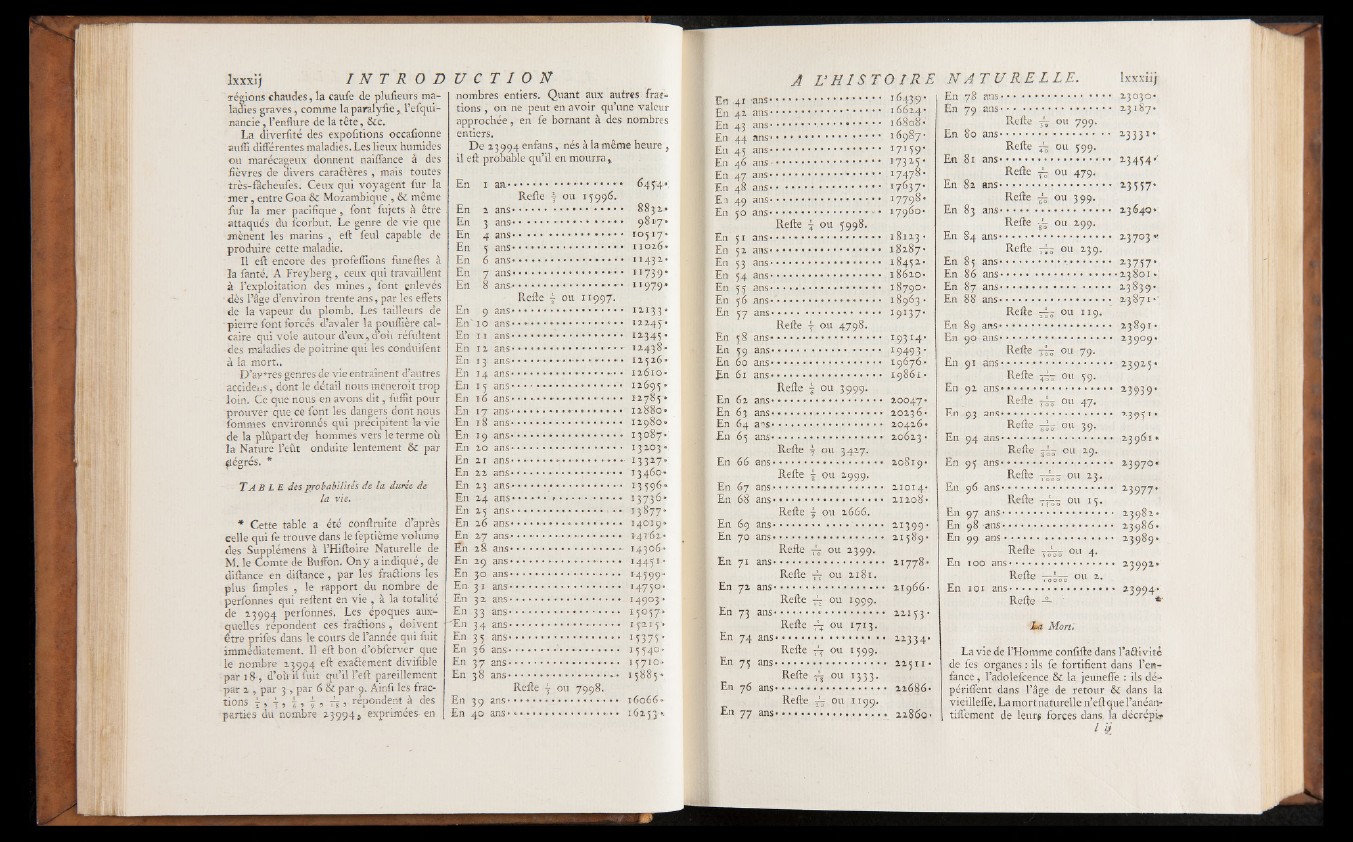 lxxxij INTRODUCTION
régions chaudes, la cauſe de pluſieurs ma-
ladies graves, comme la paralyſie, l'eſqui-
nancie, l'enflure de la tête, &c.
La diverſité des expoſitions occaſionne
auſſi différentes maladies. Les lieux humides
ou marécageux donnent naiſſance à des
fièvres de divers caractères, mais toutes
très-fâcheuſes. Ceux qui voyagent ſur la
mer, entre Goa & Mozambique, & même
ſur la mer pacifique, ſont ſujets à être
attaqués du ſcorbut. Le genre de vie que
mènent les marins, eſt ſeul capable de
produire cette maladie.
Il eſt encore des profeſſions funeſtes à
la ſanté. A Freyberg, ceux qui travaillent
à l'exploitation des mines, ſont enlevés
dès l'âge d'environ trente ans, par les effets
de la vapeur du plomb. Les tailleurs de
pierre ſont forcés d'avaler la pouſſière cal-
caire qui vole autour d'eux, d'où réſultent
des maladies de poitrine qui les conduiſent
à la mort.
D'autres genres de vie entraînent d'autres
accidens, dont le détail nous meneroit trop
loin. Ce que nous en avons dit, ſuffit pour
prouver que ce ſont les dangers dont nous
ſommes environnés qui précipitent la vie
de la plûpart des hommes vers le terme où
la Nature l'eût onduite lentement & par
dégrés. *
TABLE des probabilités de la durée de
la vie.
* Cette table a été conſtruite d'après
celle qui ſe trouve dans le ſeptième volume
des Supplémens à l'Hiſtoire Naturelle de
M. le Comte de Buffon. On y a indiqué, de
diſtance en diſtance, par les fractions les
plus ſimples, le rapport du nombre de
perſonnes qui reſtent en vie, à la totalité
de 23994 perſonnes. Les époques aux-
quelles répondent ces fractions, doivent
être priſes dans le cours de l'année qui ſuit
immédiatement. Il eſt bon d'obſerver que
le nombre 23994 eſt exactement diviſible
par 18, d'où il ſuit qu'il l'eſt pareillement
par 2, par 3, par 6 & par 9. Ainſi les frac-
tions 1/2, 1/3, 1/6, 1/9, 1/18, répondent à des
parties du nombre 23994, exprimées en
nombres entiers. Quant aux autres frac-
tions, on ne peut en avoir qu'une valeur
approchée, en ſe bornant à des nombres
entiers.
De 23994 enfans, nés à la même heure,
il eſt probable qu'il en mourra,
En 1 an 6454.
Reſte 2/3 ou 15996.
En 2 ans 8832.
En 3 ans 9817.
En 4 ans 10517.
En 5 ans 11026.
En 6 ans 11432.
En 7 ans 11739.
En 8 ans 11979.
Reſte 1/2 ou 11997.
En 9 ans 12133.
En 10 ans 12245.
En 11 ans 12345.
En 12 ans 12438.
En 13 ans 12526.
En 14 ans 12610.
En 15 ans 12695.
En 16 ans 12785.
En 17 ans 12880.
En 18 ans 12980.
En 19 ans 13087.
En 20 ans 13203.
En 21 ans 13327.
En 22 ans 13460.
En 23 ans 13596.
En 24 ans 13736.
En 25 ans 13877.
En 26 ans 14019.
En 27 ans 14162.
En 28 ans 14306.
En 29 ans 14451.
En 30 ans 14599.
En 31 ans 14750.
En 32 ans 14903.
En 33 ans 15057.
En 34 ans 15215.
En 35 ans 15375.
En 36 ans 15540.
En 37 ans 15710.
En 38 ans 15885.
Reſte 1/3 ou 7998.
En 39 ans 16066.
En 40 ans 16253.
A L'HISTOIRE NATURELLE. lxxxiij
En 41 ans 16439.
En 42 ans 16624.
En 43 ans 16808.
En 44 ans 16987.
En 45 ans 17159.
En 46 ans 17325.
En 47 ans 17478.
En 48 ans 17637.
En 49 ans 17798.
En 50 ans 17960.
Reſte 1/4 ou 5998.
En 51 ans 18123.
En 52 ans 18287.
En 53 ans 18452.
En 54 ans 18620.
En 55 ans 18790.
En 56 ans 18963.
En 57 ans 19137.
Reſte 1/5 ou 4798.
En 58 ans 19314.
En 59 ans 19493.
En 60 ans 19676.
En 61 ans 19861.
Reſte 1/6 ou 3999.
En 62 ans 20047.
En 63 ans 20236.
En 64 ans 20426.
En 65 ans 20623.
Reſte 1/7 ou 3427.
En 66 ans 20819.
Reſte 1/8 ou 2999.
En 67 ans 21014.
En 68 ans 21208.
Reſte 1/9 ou 2666.
En 69 ans 21399.
En 70 ans 21589.
Reſte 1/10 ou 2399.
En 71 ans 21778.
Reſte 1/11 ou 2181.
En 72 ans 21966.
Reſte 1/12 ou 1999.
En 73 ans 22153.
Reſte 1/14 ou 1713.
En 74 ans 22334.
Reſte 1/15 ou 1599.
En 75 ans 22511.
Reſte 1/18 ou 1333.
En 76 ans 22686.
Reſte 1/20 ou 1199.
En 77 ans 22860.
En 78 ans 23030.
En 79 ans 23187.
Reſte 1/30 ou 799.
En 80 ans 23331.
Reſte 1/40 ou 599.
En 81 ans 23454.
Reſte 1/50 ou 479.
En 82 ans 23557.
Reſte 1/60 ou 399.
En 83 ans 23640.
Reſte 1/80 ou 299.
En 84 ans 23703.
Reſte 1/100 ou 239.
En 85 ans 23757.
En 86 ans 23801.
En 87 ans 23839.
En 88 ans 23871.
Reſte 1/200 ou 119.
En 89 ans 23891.
En 90 ans 23909.
Reſte 1/300 ou 79.
En 91 ans 23925.
Reſte 1/400 ou 59.
En 92 ans 23939.
Reſte 1/500 ou 47.
En 93 ans 23951.
Reſte 1/600 ou 39.
En 94 ans 23961.
Reſte 1/800 ou 29.
En 95 ans 23970.
Reſte 1/1000 ou 23.
En 96 ans 23977.
Reſte 1/1500 ou 15.
En 97 ans 23982.
En 98 ans 23986.
En 99 ans 23989.
Reſte 1/5000 ou 4.
En 100 ans 23992.
Reſte 1/10000 ou 2.
En 101 ans 23994.
Reſte
La Mort.
La vie de l'Homme conſiſte dans l'activité
de ſes organes : ils ſe fortifient dans l'en-
fance, l'adoleſcence & la jeuneſſe : ils dé-
périſſent dans l'âge de retour & dans la
vieilleſſe. La mort naturelle n'eſt que l'anéan-
tiſſement de leurs forces dans la décrépi-
l ij